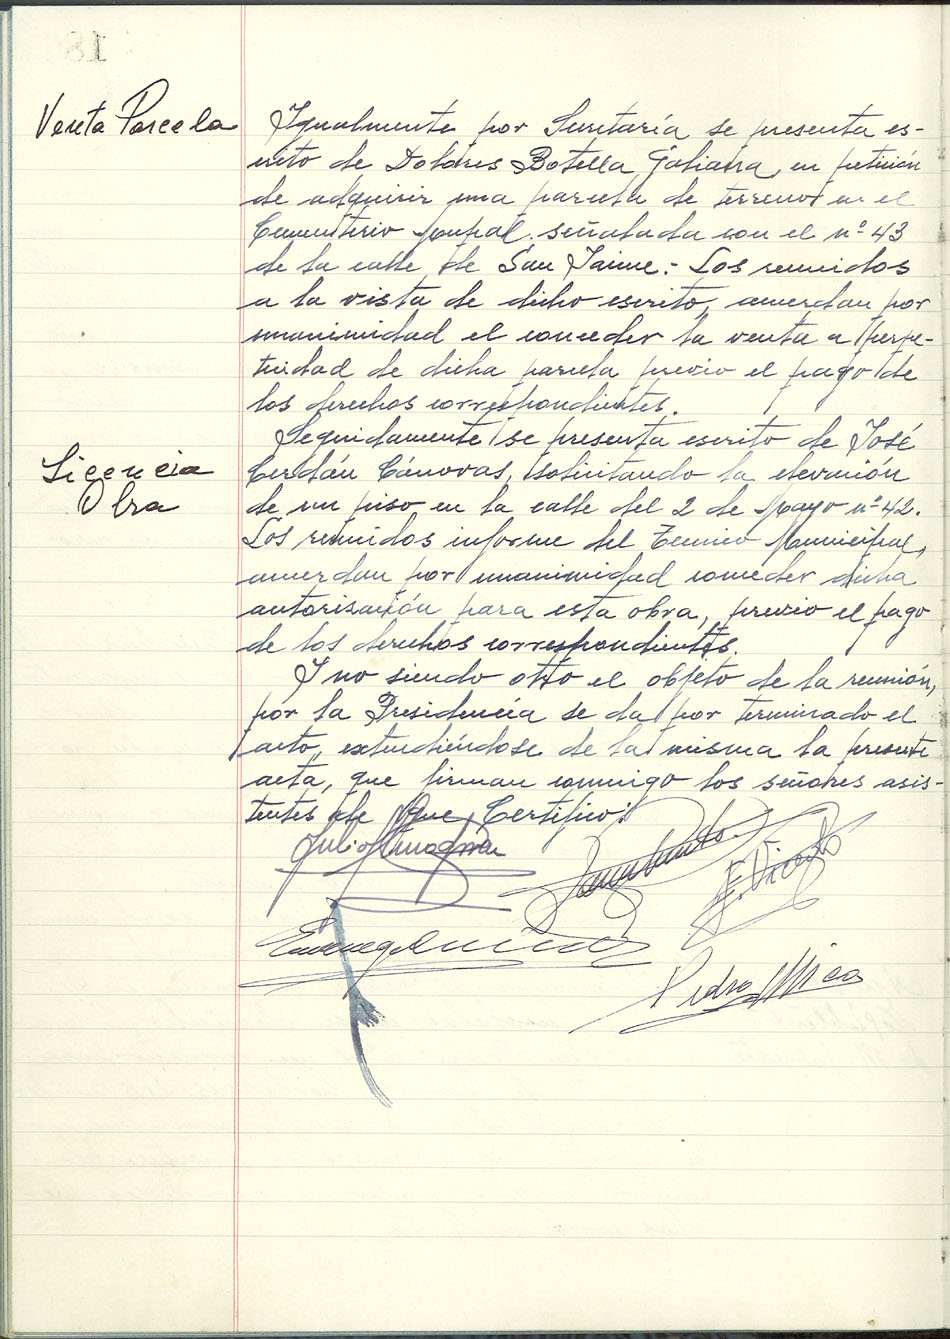 Venta Parcela
Igualmente por Secretaría se presenta es-
crito de Dolores Botella Galiana, en petición
de adquirir una parcela de terreno en el
Cementerio Mupal. señalada con el nº 43
de la calle de San Jaime.- Los reunidos
a la vista de dicho escrito, acuerdan por
unanimidad el conceder la venta a perpe-
tuidad de dicha parcela previo el pago de
los derechos correspondientes.
Licencia
Obra
Seguidamente se presenta escrito de José
Cerdán Cánovas, solicitando la elevación
de un piso en la calle del 2 de Mayo nº 42.
Los reunidos informe del Tecnico Municipal,
acuerdan por unanimidad conceder dicha
autorización para esta obra, previo el pago
de los derechos correspondientes.
Y no siendo otro el objeto de la reunión,
por la Presidencia se da por terminado el
acto, extendiéndose de la misma la presente
acta, que firman conmigo los señores asis-
tentes de que Certifico:
Julio
F. Vicente
Pedro Mico